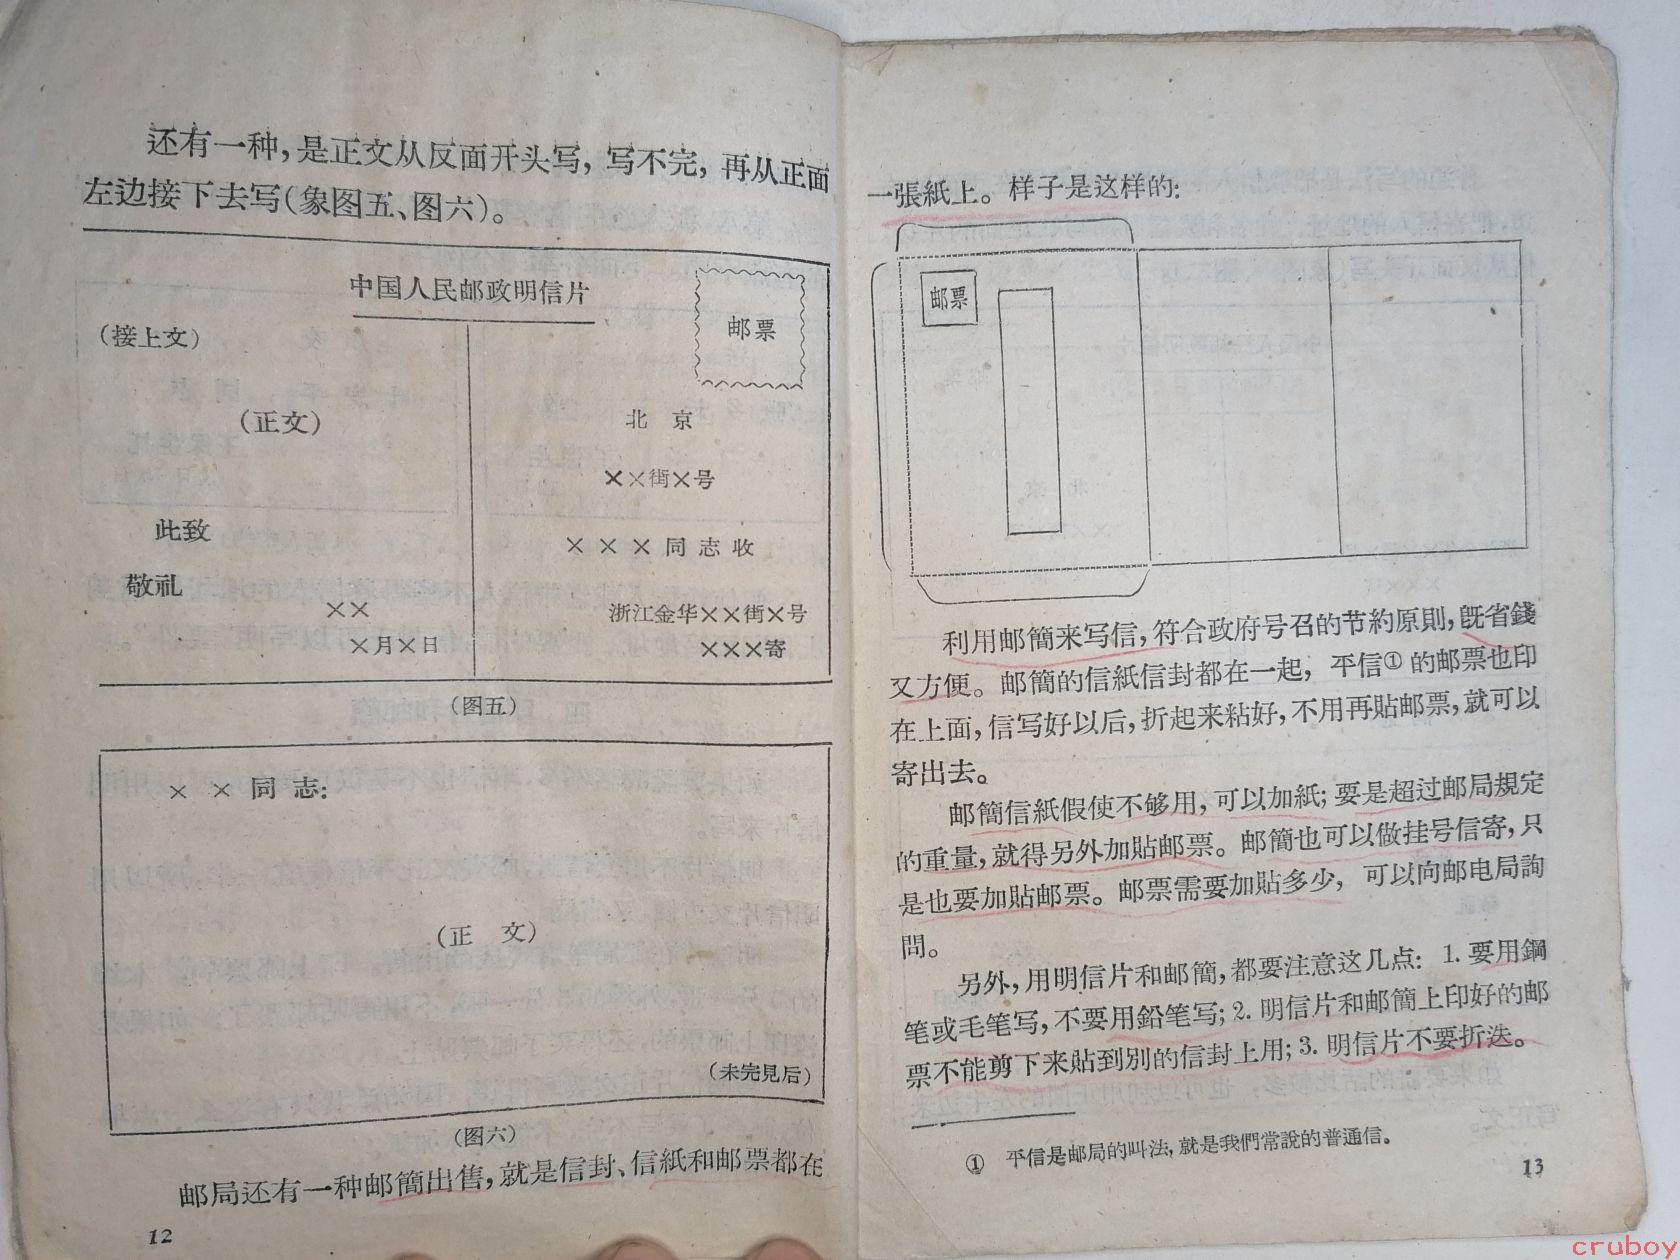 还有一种，是正文从反面开头写，写不完，再从正面
左边接下去写（象图五、图六）。
中国人民邮政明信片
邮票
（接上文）
（正文）
此致
敬礼
××
×月×日
北 京
××街×号
×××同志收
浙江金华××街×号
×××寄
（图五）
××同志：
（正 文）
（未完見后）
（图六）
邮局还有一种邮簡出售，就是信封、信紙和邮票都在
12
一張紙上。样子是这样的：
邮票
利用邮簡来写信，符合政府号召的节約原則，既省錢
又方便。邮簡的信紙信封都在一起，平信①的邮票也印
在上面，信写好以后，折起来粘好，不用再貼邮票，就可以
寄出去。
邮簡信紙假使不够用，可以加紙；要是超过邮局規定
的重量，就得另外加貼邮票。邮簡也可以做挂号信寄，只
是也要加貼邮票。邮票需要加貼多少，可以向邮电局詢
問。
另外，用明信片和邮簡，都要注意这几点：1.要用鋼
笔或毛笔写，不要用鉛笔写；2.明信片和邮簡上印好的邮
票不能剪下来貼到別的信封上用；3.明信片不要折迭。
① 平信是邮局的叫法，就是我們常說的普通信。
13
cruboy